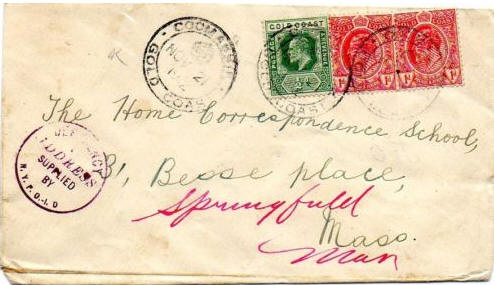 COOMASSIE
NOV 21
GOLD COAST
GOLD COAST
POSTAGE
REVENUE
1d
1d
The Home Correspondence School,
31, Besse place,
Springfield
Mass.
Mass
DEFICIENCY
ADDRESS
SUPPLIED
BY
N.Y.P.O.-I.D